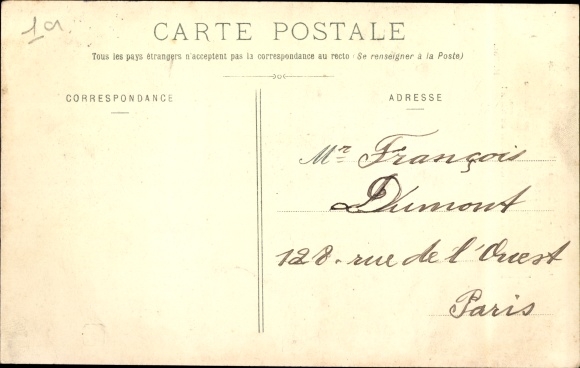 1a
CARTE POSTALE
Tous les pays étrangers n'acceptent pas la correspondance au recto (Se renseigner à la Poste)
CORRESPONDANCE
ADRESSE
Mr François
Dumont
128. rue de l'Ouest
Paris